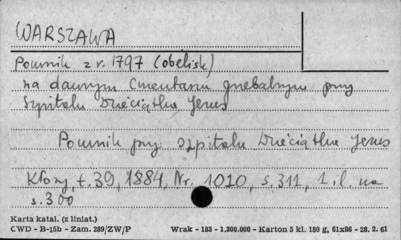 WARSZAWA
Pomnik z r. 1797 (obelisk)
na dawnym Cmentarzu grzebalnym przy
Szpitalu Dzieciątka Jezus
Pomnik przy szpitalu Dzieciątka Jezus
Kłosy, t. 39, 1884, Nr. 1010, s. 311, 1 il. na
s. 300
Karta katal. (z liniat.)
CWD - B-15b - Zam. 289/ZW/P
Wrak - 183 - 1.300.000 - Karton 5 kl. 180 g, 61x86 - 28. 2. 61